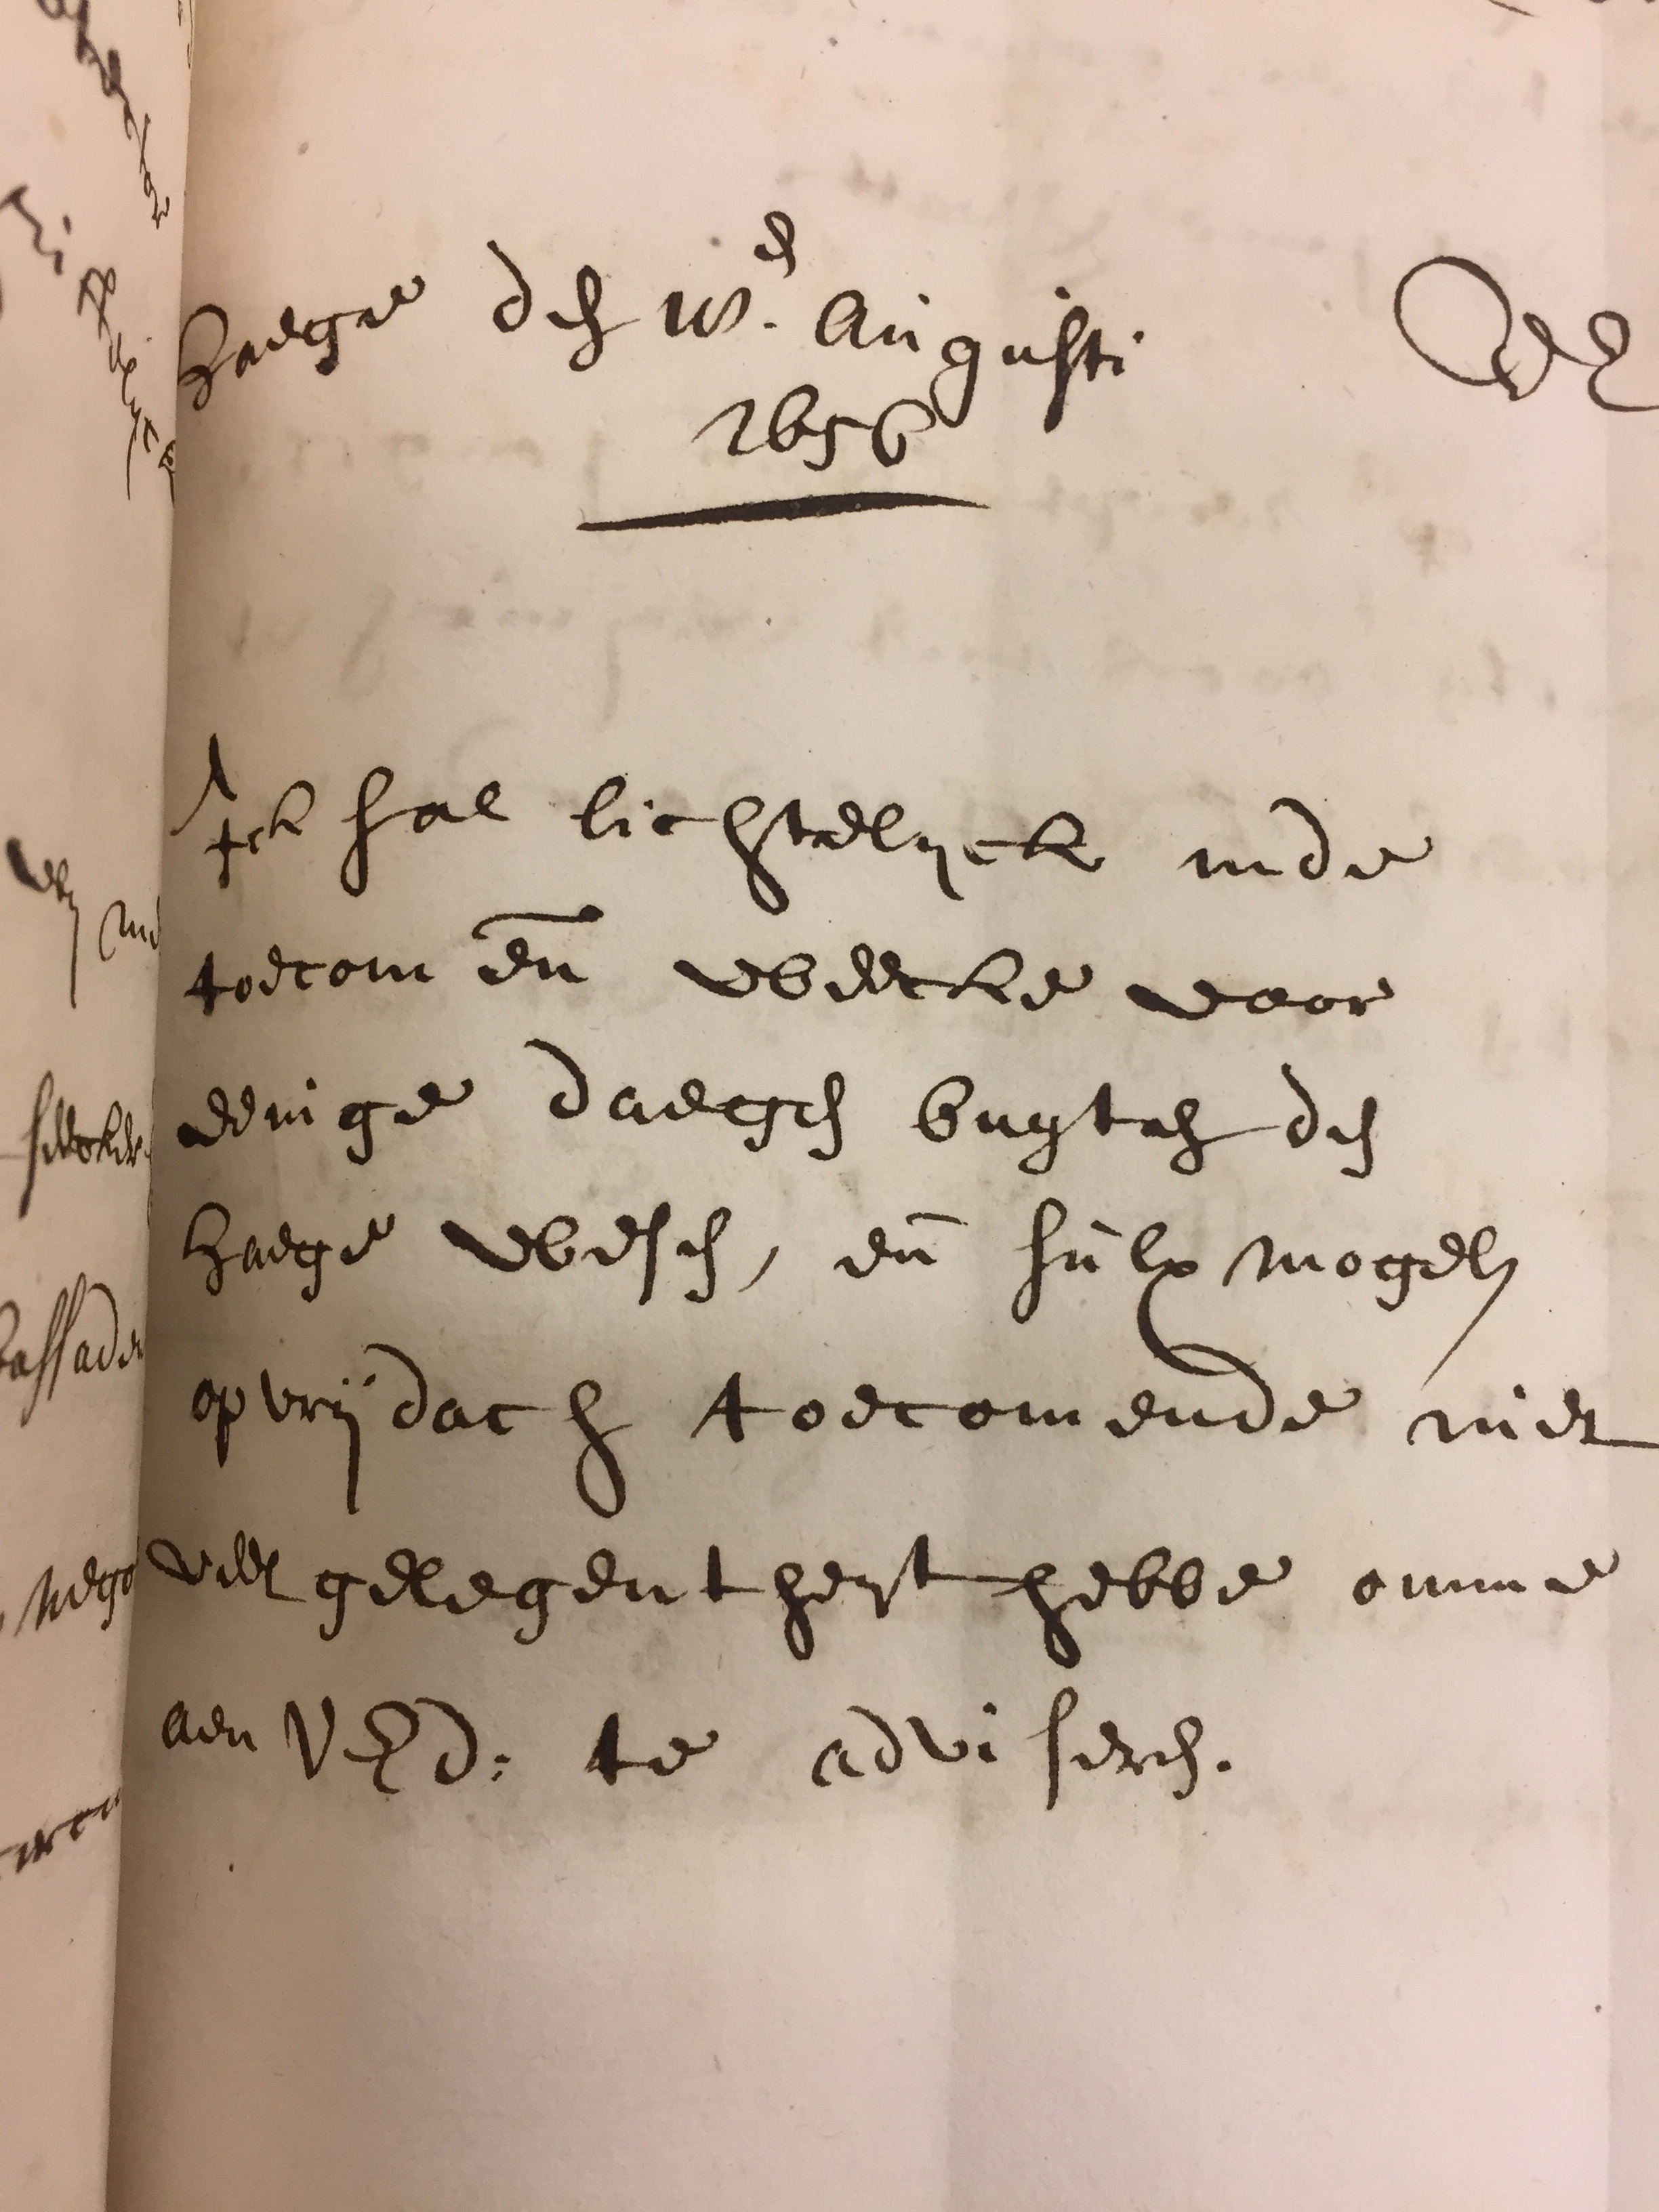 Haege den 10en. Augusti
1656
Ick sal lichtelyck inde
toecomen den weecke voor
eenige daegen buyten den
Haege wesen, en̄ sulx mogelÿ
op vrijdach toecomende niet
veel gelegentheyt hebbe omme
aen UEd: te adviseren.